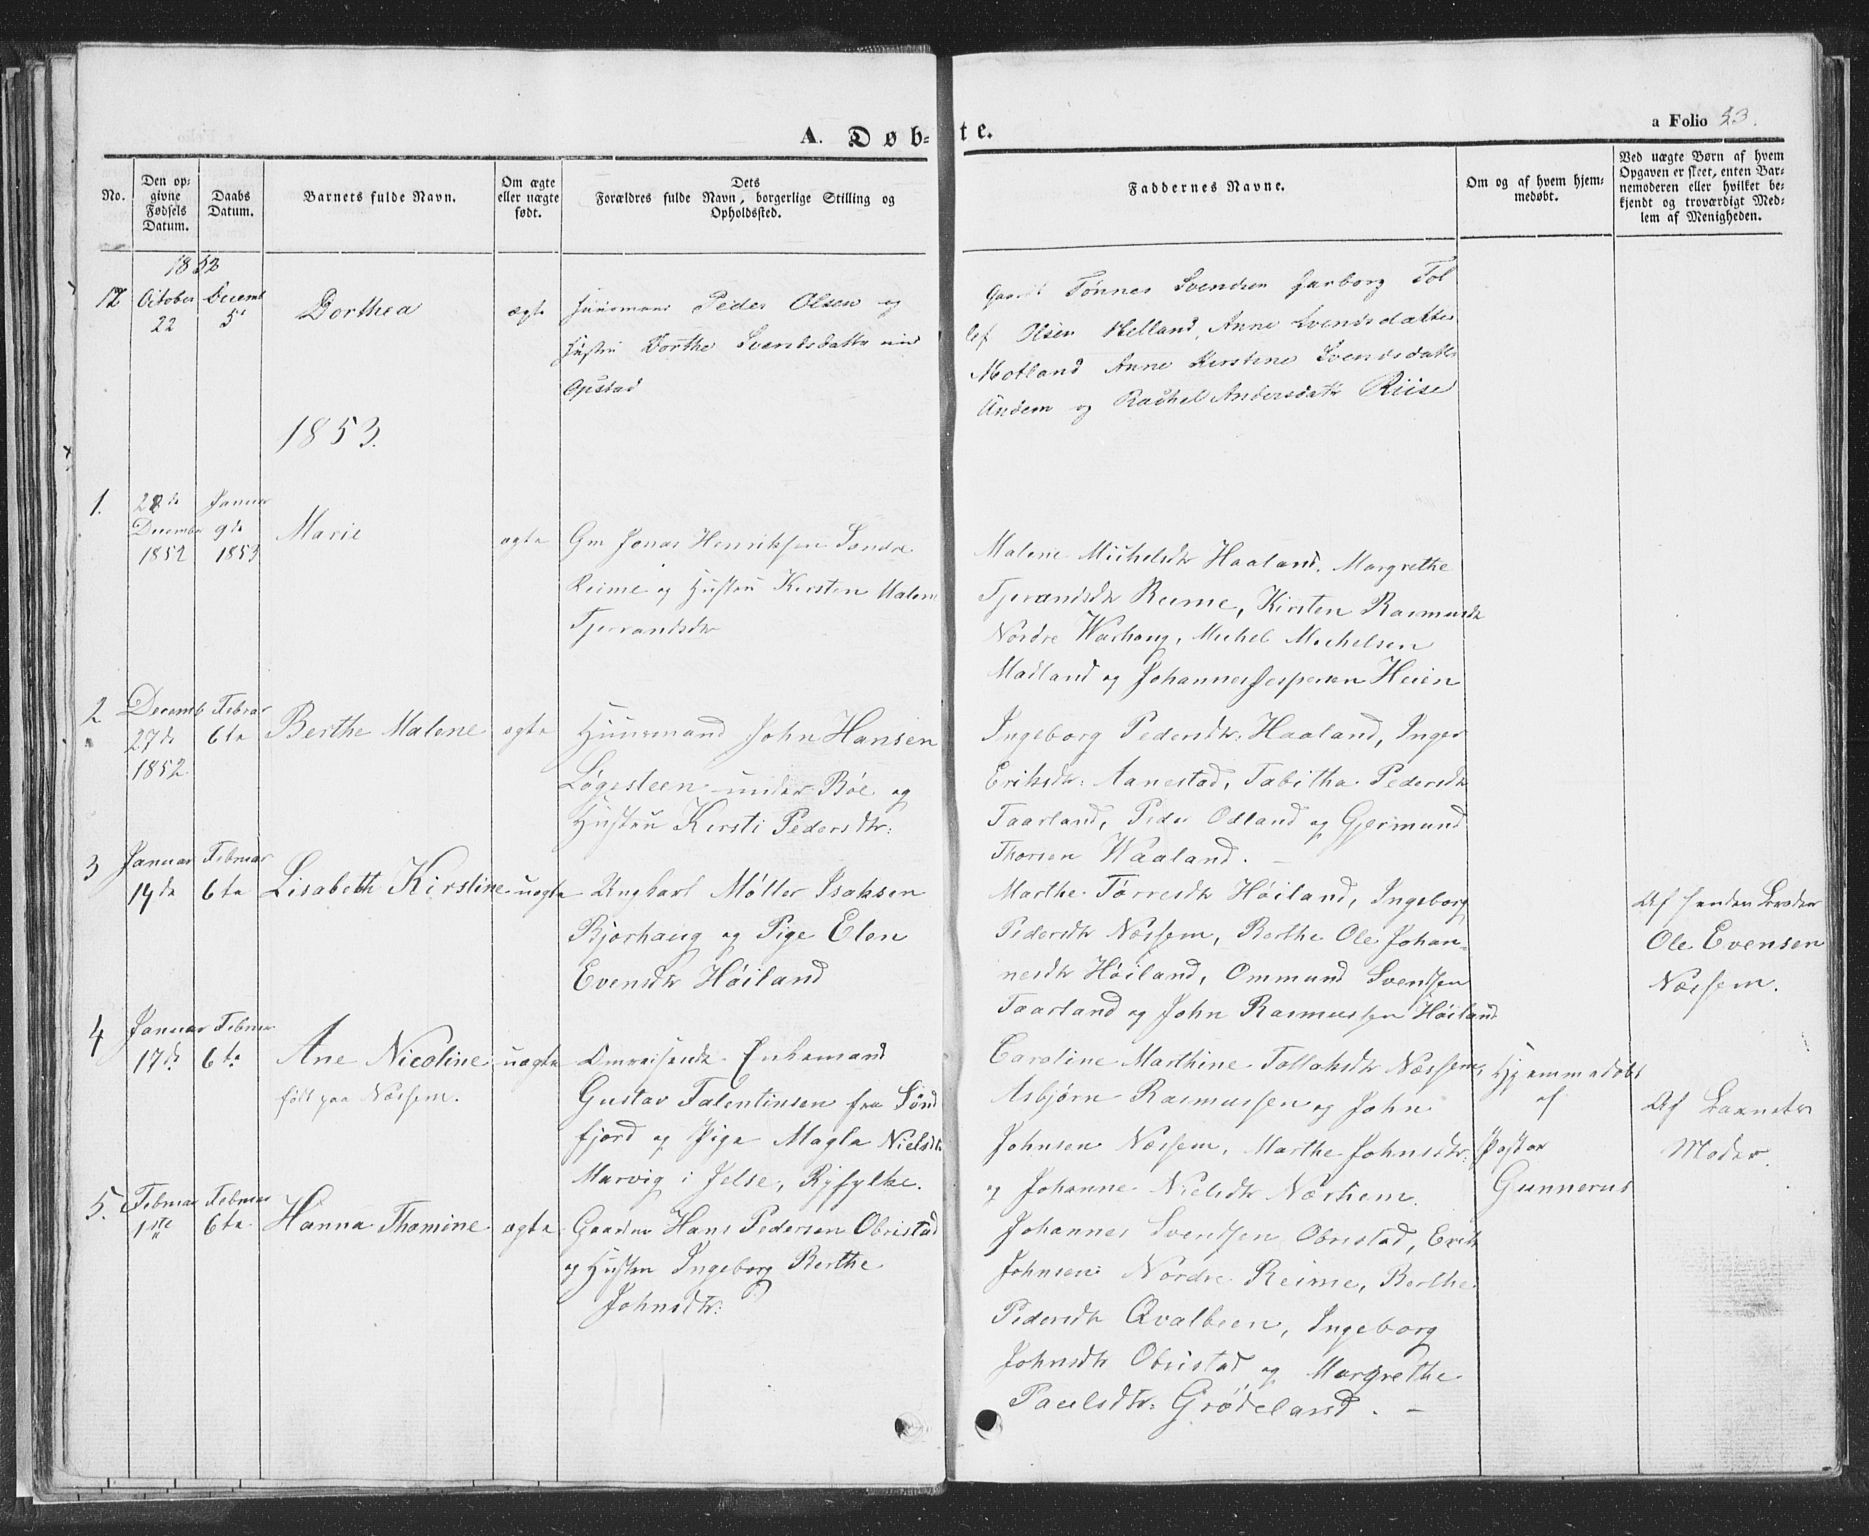 A. Døb-te.
a Folio 53.
No.
Den op-
givne
Fødsels
Datum.
Daabs
Datum.
Barnets fulde Navn.
Om ægte
eller uægte
født.
Dets
Forældres fulde Navn, borgerlige Stilling og
Opholdssted.
Faddernes Navne.
Om og af hvem hjem-
medøbt.
Ved uægte Børn af hvem
Opgaven er skeet, enten Bar-
nemoderen eller hvilket be-
kjendt og troværdigt Med-
lem af Menigheden.
1852
12
October
22
Decemb
5te
Dorthea
ægte
Huusmand Peder Olsen og
Hustru Dorthe Svendsdatter
Opstad
Tønnes Svendsen Tol
lef Olsen Helland, Anne Svendsdatter
Motland Anne Kerstene Svendsdatter
Undem og Rachel Andersdatr Riise
1853.
1.
de
December
1852
Januar
9de
1853
Marie
ægte
Gm Jonas Henriksen Søndre
Reime og Hustru Kirsten Malene
Tjerandsdtr
Malene Michelsdtr Haaland, Margrethe
Tjerandsdtr Reime, Kirsten Rasmusdtr
Nordre Warhaug, Michel Michelsen
Madland og Johannes Jespersen Heien
2
Decemb
27de
1852
Februar
6te
Berthe Malene
ægte
Huusmand John Hansen
Løgesteen under Bøe og
Hustru Kirsti Pedersdtr:
Ingeborg Pedersdtr: Haaland, Inger
Eriksdtr: Aanestad, Tabitha Pedersdtr
Taarland, Peder Odland og Gjermund
Thorsen Waaland. –
3
Januar
14de
Februar
6te
Lisabeth Kirstine
uægte
Ungkarl Møller Isaksen
Bjorhaug og Pige Elen
Evensdtr Høiland
Marthe Tørresdtr Høiland, Ingeborg
Pedersdtr Næssem, Berthe Ole Johan-
nesdtr Høiland, Ommund Svendsen
Taarland og John Rasmussen Høiland
Ole Evensen
Næssem.
4
Januar
17de
Februar
6te
Ane Nicoline
født paa Næssem.
uægte
Omreisende Enkemand
Gustav Talentinsen fra Sønd
fjord og Pige Magla Nielsdtr
Marvig i Jelse, Ryfylke.
Caroline Marthine Tollaksdtr Næssem,
Asbjørn Rasmussen og John
Johnsen Næssem, Marthe Johnsdtr:
og Johanne Nielsdtr Nærhem.
Hjemmedøbt
af
Pastor
Gunnerus
Af Barnets
Moder.
5.
Februar
1ste
Februar
6te
Hanna Thomine
ægte
Gaardm Hans Pedersen Obrestad
og Hustru Ingeborg Berthe
Johnsdtr:
Johannes Svendsen Obrestad, Erik
Johnsen Nordre Reime, Berthe
Pedersdtr Qvalbeen, Ingeborg
Johnsdtr Obrestad og Margrethe
Paulsdtr: Grødeland. –